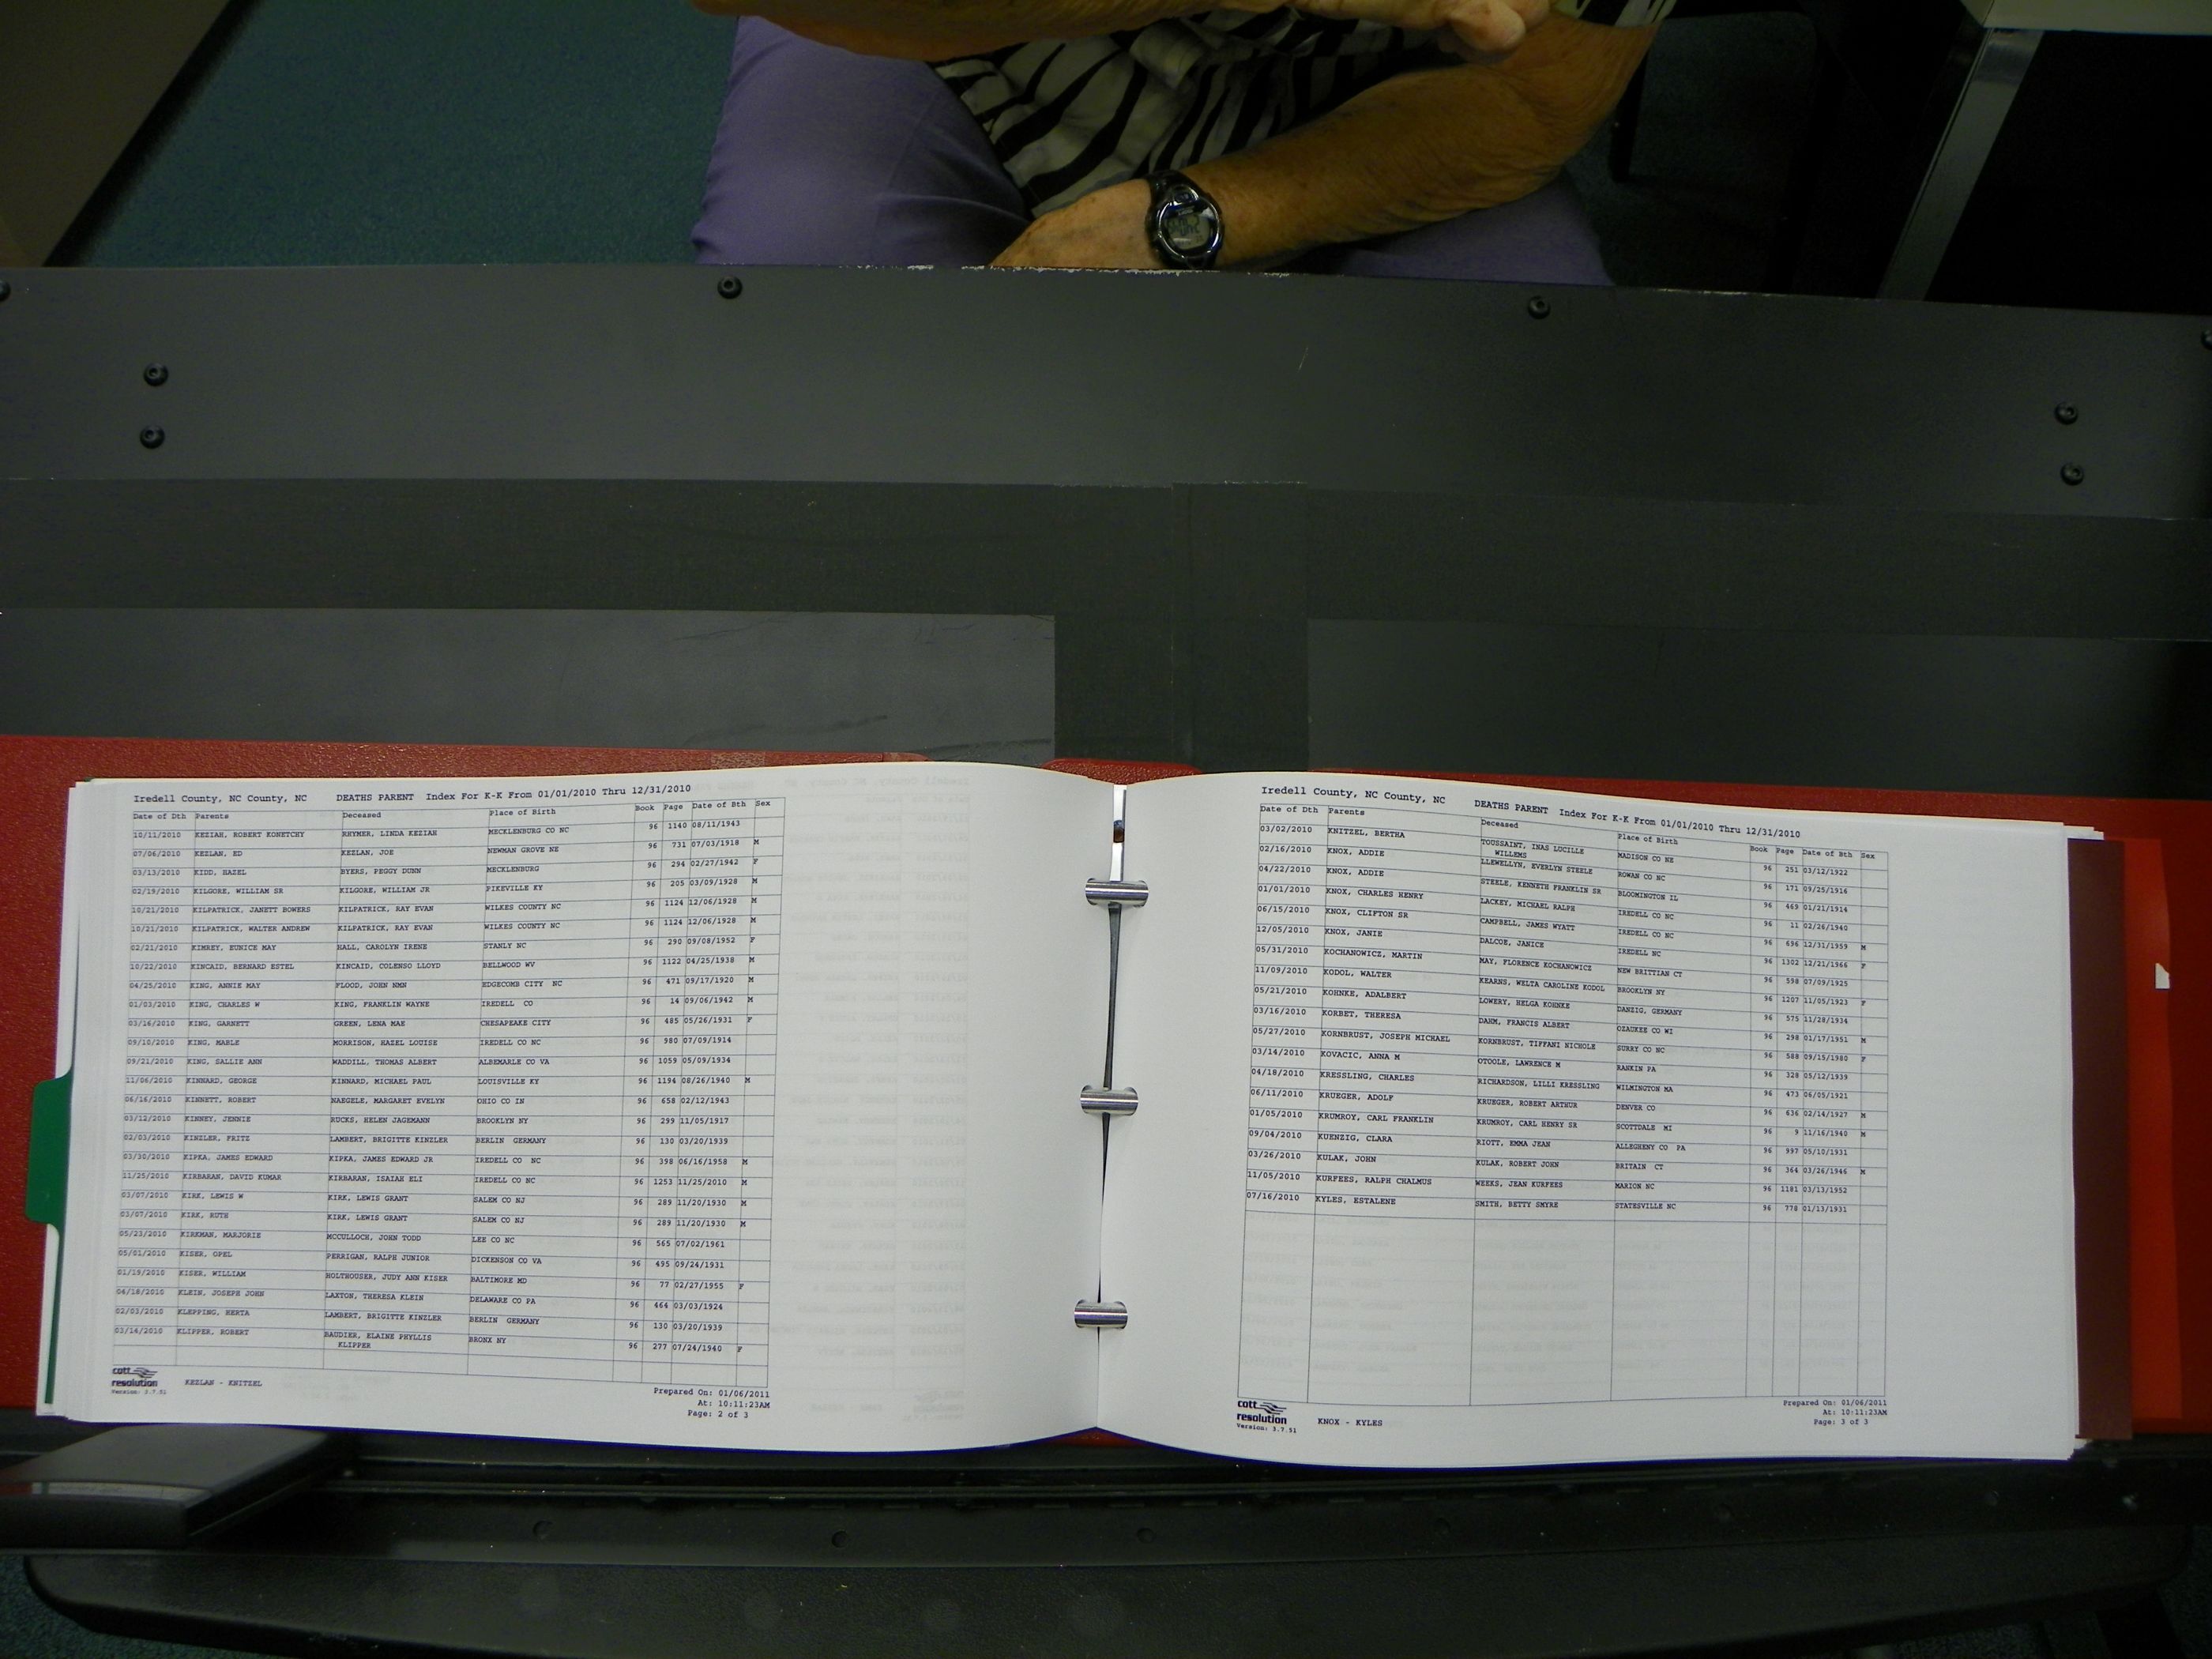 Iredell County, NC County, NC DEATHS PARENT Index For K-K From 01/01/2010 Thru 12/31/2010
Date of Dth Parents Deceased Place of Birth Book Page Date of Bth Sex
10/11/2010 KEZIAH, ROBERT KONETCHY RHYMER, LINDA KEZIAH MECKLENBURG CO NC 96 1140 08/11/1943
07/06/2010 KEZLAN, ED KEZLAN, JOE NEWMAN GROVE NE 96 731 07/03/1918 M
03/13/2010 KIDD, HAZEL BYERS, PEGGY DUNN MECKLENBURG 96 294 02/27/1942 F
02/19/2010 KILGORE, WILLIAM SR KILGORE, WILLIAM JR PIKEVILLE KY 96 205 03/09/1928 M
10/21/2010 KILPATRICK, JANETT BOWERS KILPATRICK, RAY EVAN WILKES COUNTY NC 96 1124 12/06/1928 M
10/21/2010 KILPATRICK, WALTER ANDREW KILPATRICK, RAY EVAN WILKES COUNTY NC 96 1124 12/06/1928 M
02/21/2010 KIMREY, EUNICE MAY HALL, CAROLYN IRENE STANLY NC 96 290 09/08/1952 F
10/22/2010 KINCAID, BERNARD ESTEL KINCAID, COLENSO LLOYD BELLWOOD WV 96 1122 04/25/1938 M
04/25/2010 KING, ANNIE MAY FLOOD, JOHN NMN EDGECOMB CITY NC 96 471 09/17/1920 M
01/03/2010 KING, CHARLES W KING, FRANKLIN WAYNE IREDELL CO 96 14 09/06/1942 M
03/16/2010 KING, GARNETT GREEN, LENA MAE CHESAPEAKE CITY 96 485 05/26/1931 F
09/10/2010 KING, MABLE MORRISON, HAZEL LOUISE IREDELL CO NC 96 980 07/09/1914
09/21/2010 KING, SALLIE ANN WADDILL, THOMAS ALBERT ALBEMARLE CO VA 96 1059 05/09/1934
11/06/2010 KINNARD, GEORGE KINNARD, MICHAEL PAUL LOUISVILLE KY 96 1194 08/26/1940 M
06/16/2010 KINNETT, ROBERT NAEGELE, MARGARET EVELYN OHIO CO IN 96 658 02/12/1943
03/12/2010 KINNEY, JENNIE RUCKS, HELEN JAGEMANN BROOKLYN NY 96 299 11/05/1917
02/03/2010 KINZLER, FRITZ LAMBERT, BRIGITTE KINZLER BERLIN GERMANY 96 130 03/20/1939
03/30/2010 KIPKA, JAMES EDWARD KIPKA, JAMES EDWARD JR IREDELL CO NC 96 398 06/16/1958 M
11/25/2010 KIRBARAN, DAVID KUMAR KIRBARAN, ISAIAH ELI IREDELL CO NC 96 1253 11/25/2010 M
03/07/2010 KIRK, LEWIS W KIRK, LEWIS GRANT SALEM CO NJ 96 289 11/20/1930 M
03/07/2010 KIRK, RUTH KIRK, LEWIS GRANT SALEM CO NJ 96 289 11/20/1930 M
05/23/2010 KIRKMAN, MARJORIE MCCULLOCH, JOHN TODD LEE CO NC 96 565 07/02/1961
05/01/2010 KISER, OPEL PERRIGAN, RALPH JUNIOR DICKENSON CO VA 96 495 09/24/1931
01/19/2010 KISER, WILLIAM HOLTHOUSER, JUDY ANN KISER BALTIMORE MD 96 77 02/27/1955 F
04/18/2010 KLEIN, JOSEPH JOHN LAXTON, THERESA KLEIN DELAWARE CO PA 96 464 03/03/1924
02/03/2010 KLEPPING, HERTA LAMBERT, BRIGITTE KINZLER BERLIN GERMANY 96 130 03/20/1939
03/14/2010 KLIPPER, ROBERT BAUDIER, ELAINE PHYLLIS BRONX NY 96 277 07/24/1940 F
KLIPPER
cott
resolution KEZLAN - KNITZEL
Version: 3.7.51
Prepared On: 01/06/2011
At: 10:11:23AM
Page: 2 of 3
Iredell County, NC County, NC DEATHS PARENT Index For K-K From 01/01/2010 Thru 12/31/2010
Date of Dth Parents Deceased Place of Birth Book Page Date of Bth Sex
03/02/2010 KNITZEL, BERTHA TOUSSAINT, INAS LUCILLE MADISON CO NE 96 251 03/12/1922
WILLEMS
02/16/2010 KNOX, ADDIE LLEWELLYN, EVERLYN STEELE ROWAN CO NC 96 171 09/25/1916
04/22/2010 KNOX, ADDIE STEELE, KENNETH FRANKLIN SR BLOOMINGTON IL 96 469 01/21/1914
01/01/2010 KNOX, CHARLES HENRY LACKEY, MICHAEL RALPH IREDELL CO NC 96 11 02/26/1940
06/15/2010 KNOX, CLIFTON SR CAMPBELL, JAMES WYATT IREDELL CO NC 96 696 12/31/1959 M
12/05/2010 KNOX, JANIE DALCOE, JANICE IREDELL NC 96 1302 12/21/1966 F
05/31/2010 KOCHANOWICZ, MARTIN MAY, FLORENCE KOCHANOWICZ NEW BRITTIAN CT 96 598 07/09/1925
11/09/2010 KODOL, WALTER KEARNS, WELTA CAROLINE KODOL BROOKLYN NY 96 1207 11/05/1923 F
05/21/2010 KOHNKE, ADALBERT LOWERY, HELGA KOHNKE DANZIG, GERMANY 96 575 11/28/1934
03/16/2010 KORBET, THERESA DAHM, FRANCIS ALBERT OZAUKEE CO WI 96 298 01/17/1951 M
05/27/2010 KORNBRUST, JOSEPH MICHAEL KORNBRUST, TIFFANI NICHOLE SURRY CO NC 96 588 09/15/1980 F
03/14/2010 KOVACIC, ANNA M OTOOLE, LAWRENCE M RANKIN PA 96 328 05/12/1939
04/18/2010 KRESSLING, CHARLES RICHARDSON, LILLI KRESSLING WILMINGTON MA 96 473 06/05/1921
06/11/2010 KRUEGER, ADOLF KRUEGER, ROBERT ARTHUR DENVER CO 96 636 02/14/1927 M
01/05/2010 KRUMROY, CARL FRANKLIN KRUMROY, CARL HENRY SR SCOTTDALE MI 96 9 11/16/1940 M
09/04/2010 KUENZIG, CLARA RIOTT, EMMA JEAN ALLEGHENY CO PA 96 997 05/10/1931
03/26/2010 KULAK, JOHN KULAK, ROBERT JOHN BRITAIN CT 96 364 03/26/1946 M
11/05/2010 KURFEES, RALPH CHALMUS WEEKS, JEAN KURFEES MARION NC 96 1181 03/13/1952
07/16/2010 KYLES, ESTALENE SMITH, BETTY SMYRE STATESVILLE NC 96 778 01/13/1931
cott
resolution KNOX - KYLES
Version: 3.7.51
Prepared On: 01/06/2011
At: 10:11:23AM
Page: 3 of 3